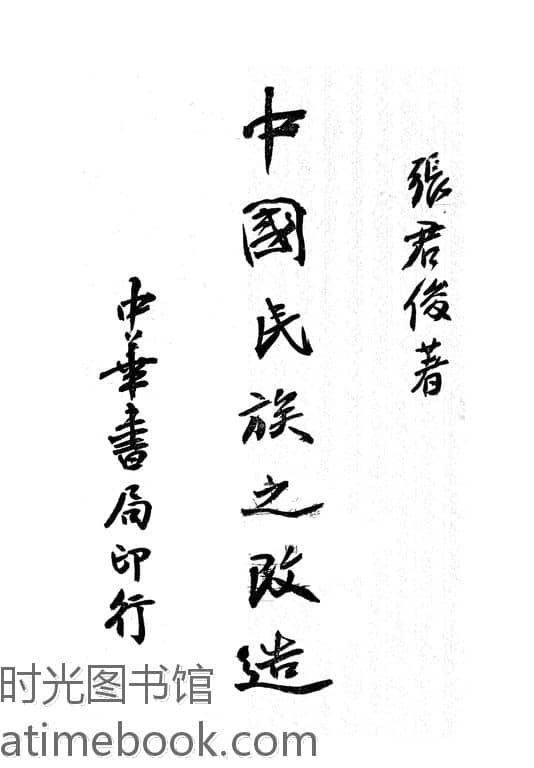 張君俊著
中國民族之改造
中華書局印行
时光图书馆
atimebook.com